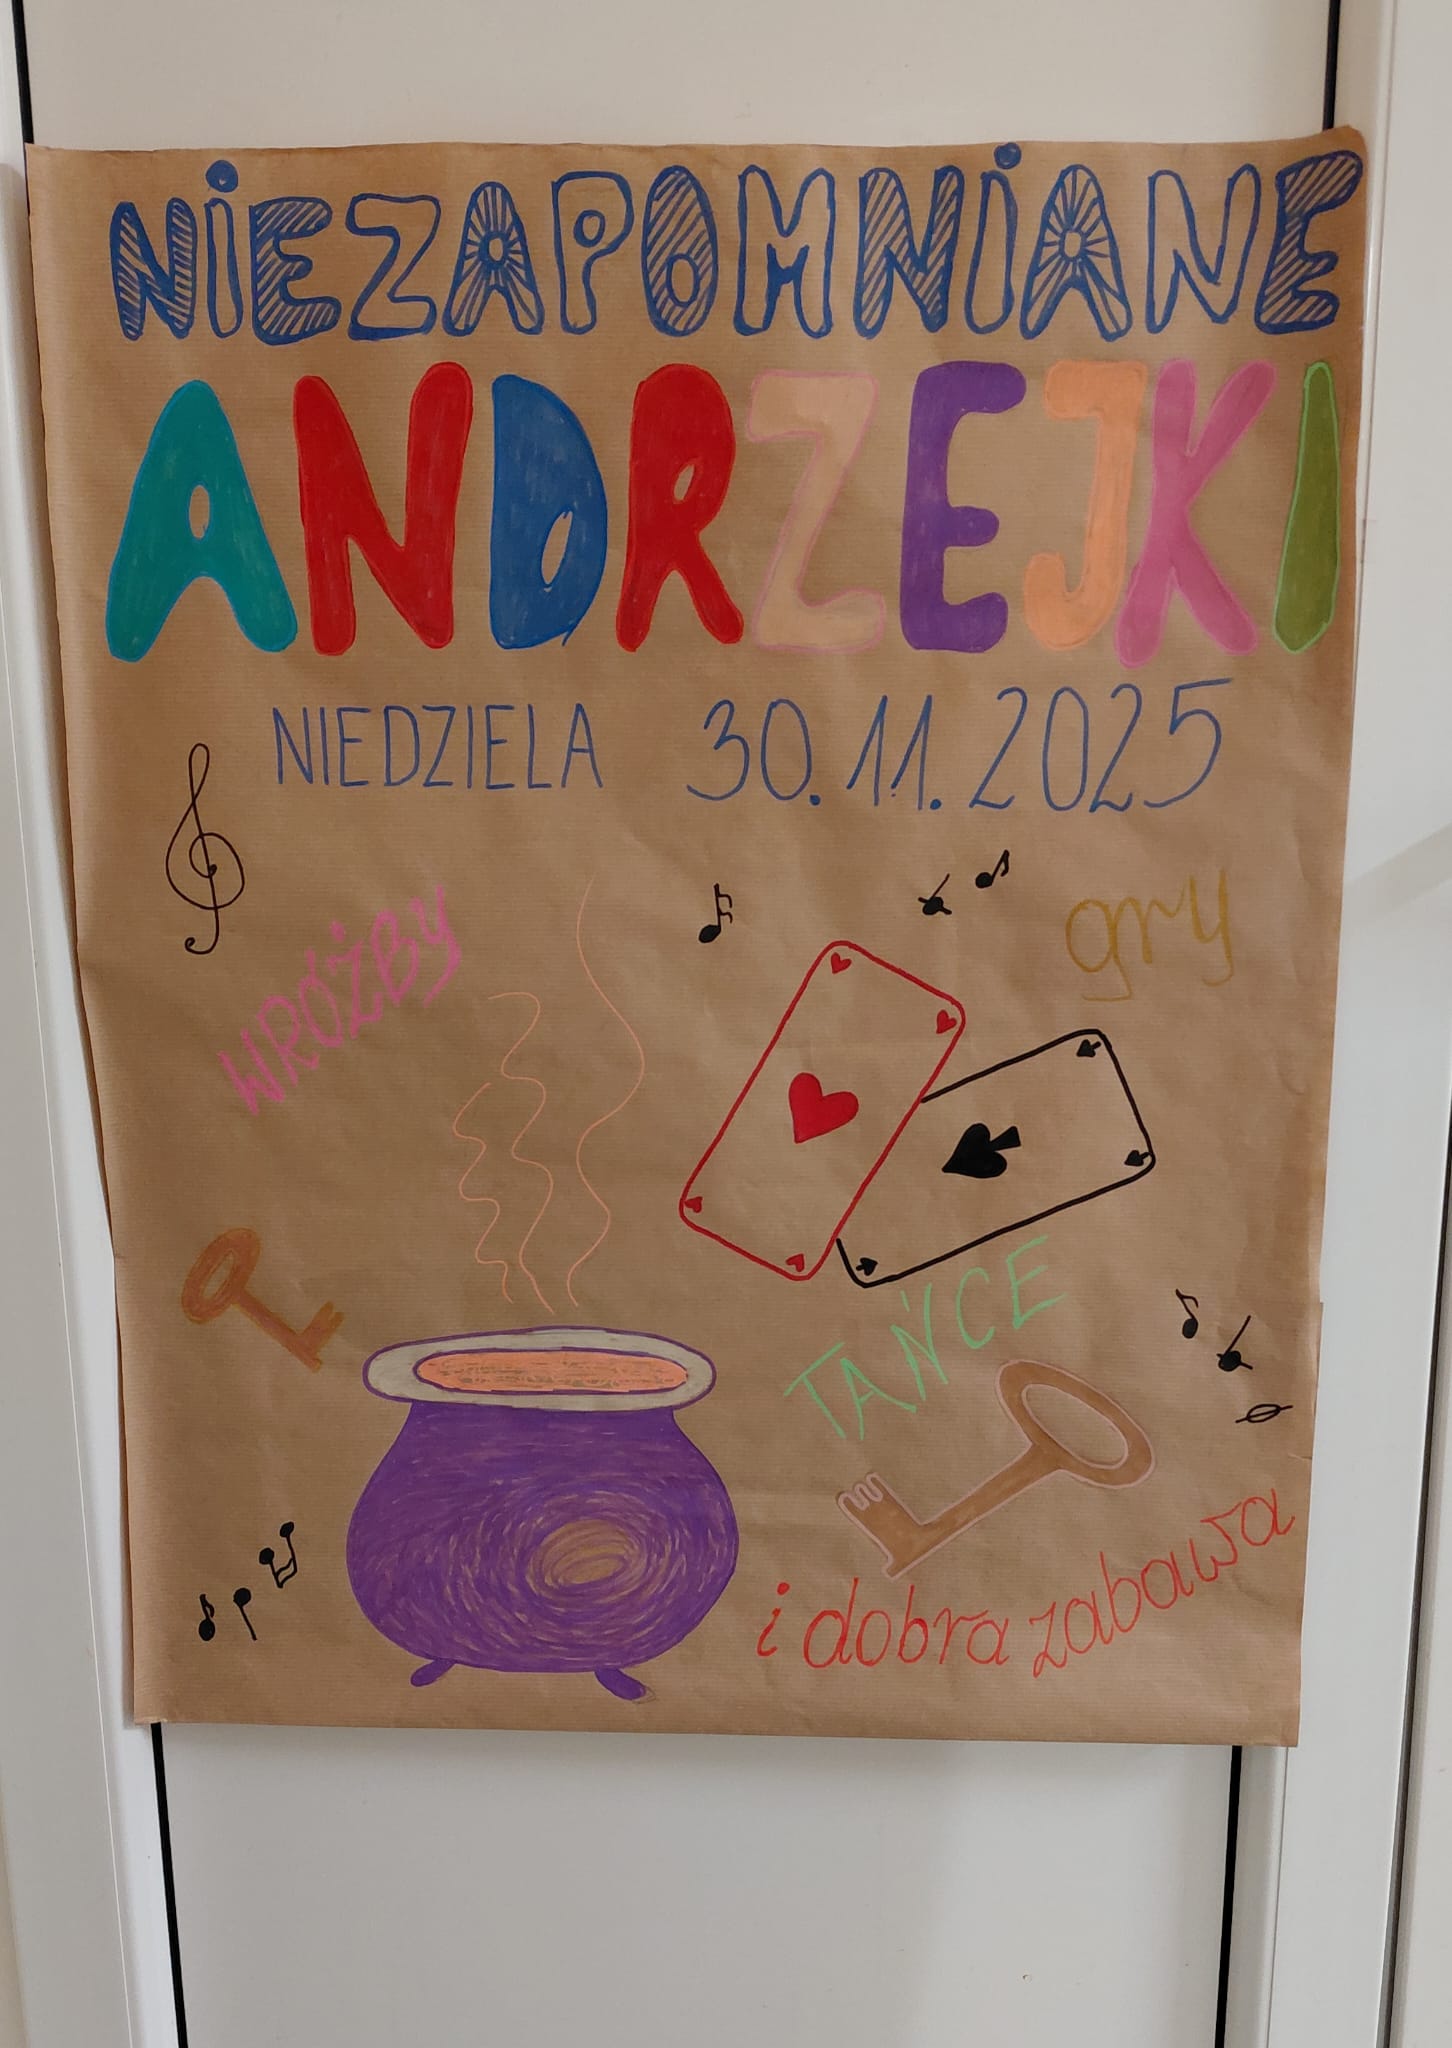 NIEZAPOMNIANE
ANDRZEJKI
NIEDZIELA 30.11.2025
WRÓŻBY
gry
TAŃCE
i dobra zabawa